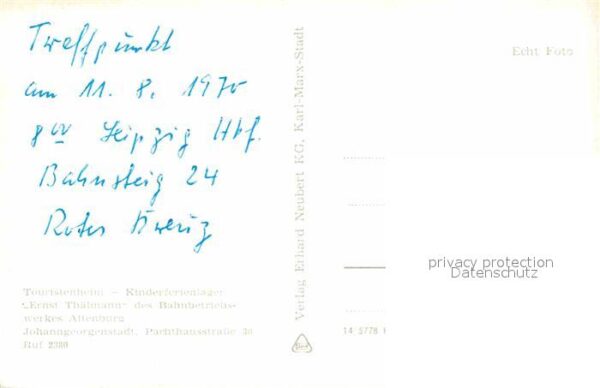 Treffpunkt
am 11. 8. 1970
8 00 Leipzig Hbf.
Bahnsteig 24
Rotes Kreuz
Touristenheim – Kinderferienlager
"Ernst Thälmann" des Bahnbetriebs-
werkes Altenburg
Johanngeorgenstadt, Pachthausstraße 36
Ruf 2380
Verlag Erhard Neubert KG, Karl-Marx-Stadt
Echt Foto
privacy protection
Datenschutz
14 5778